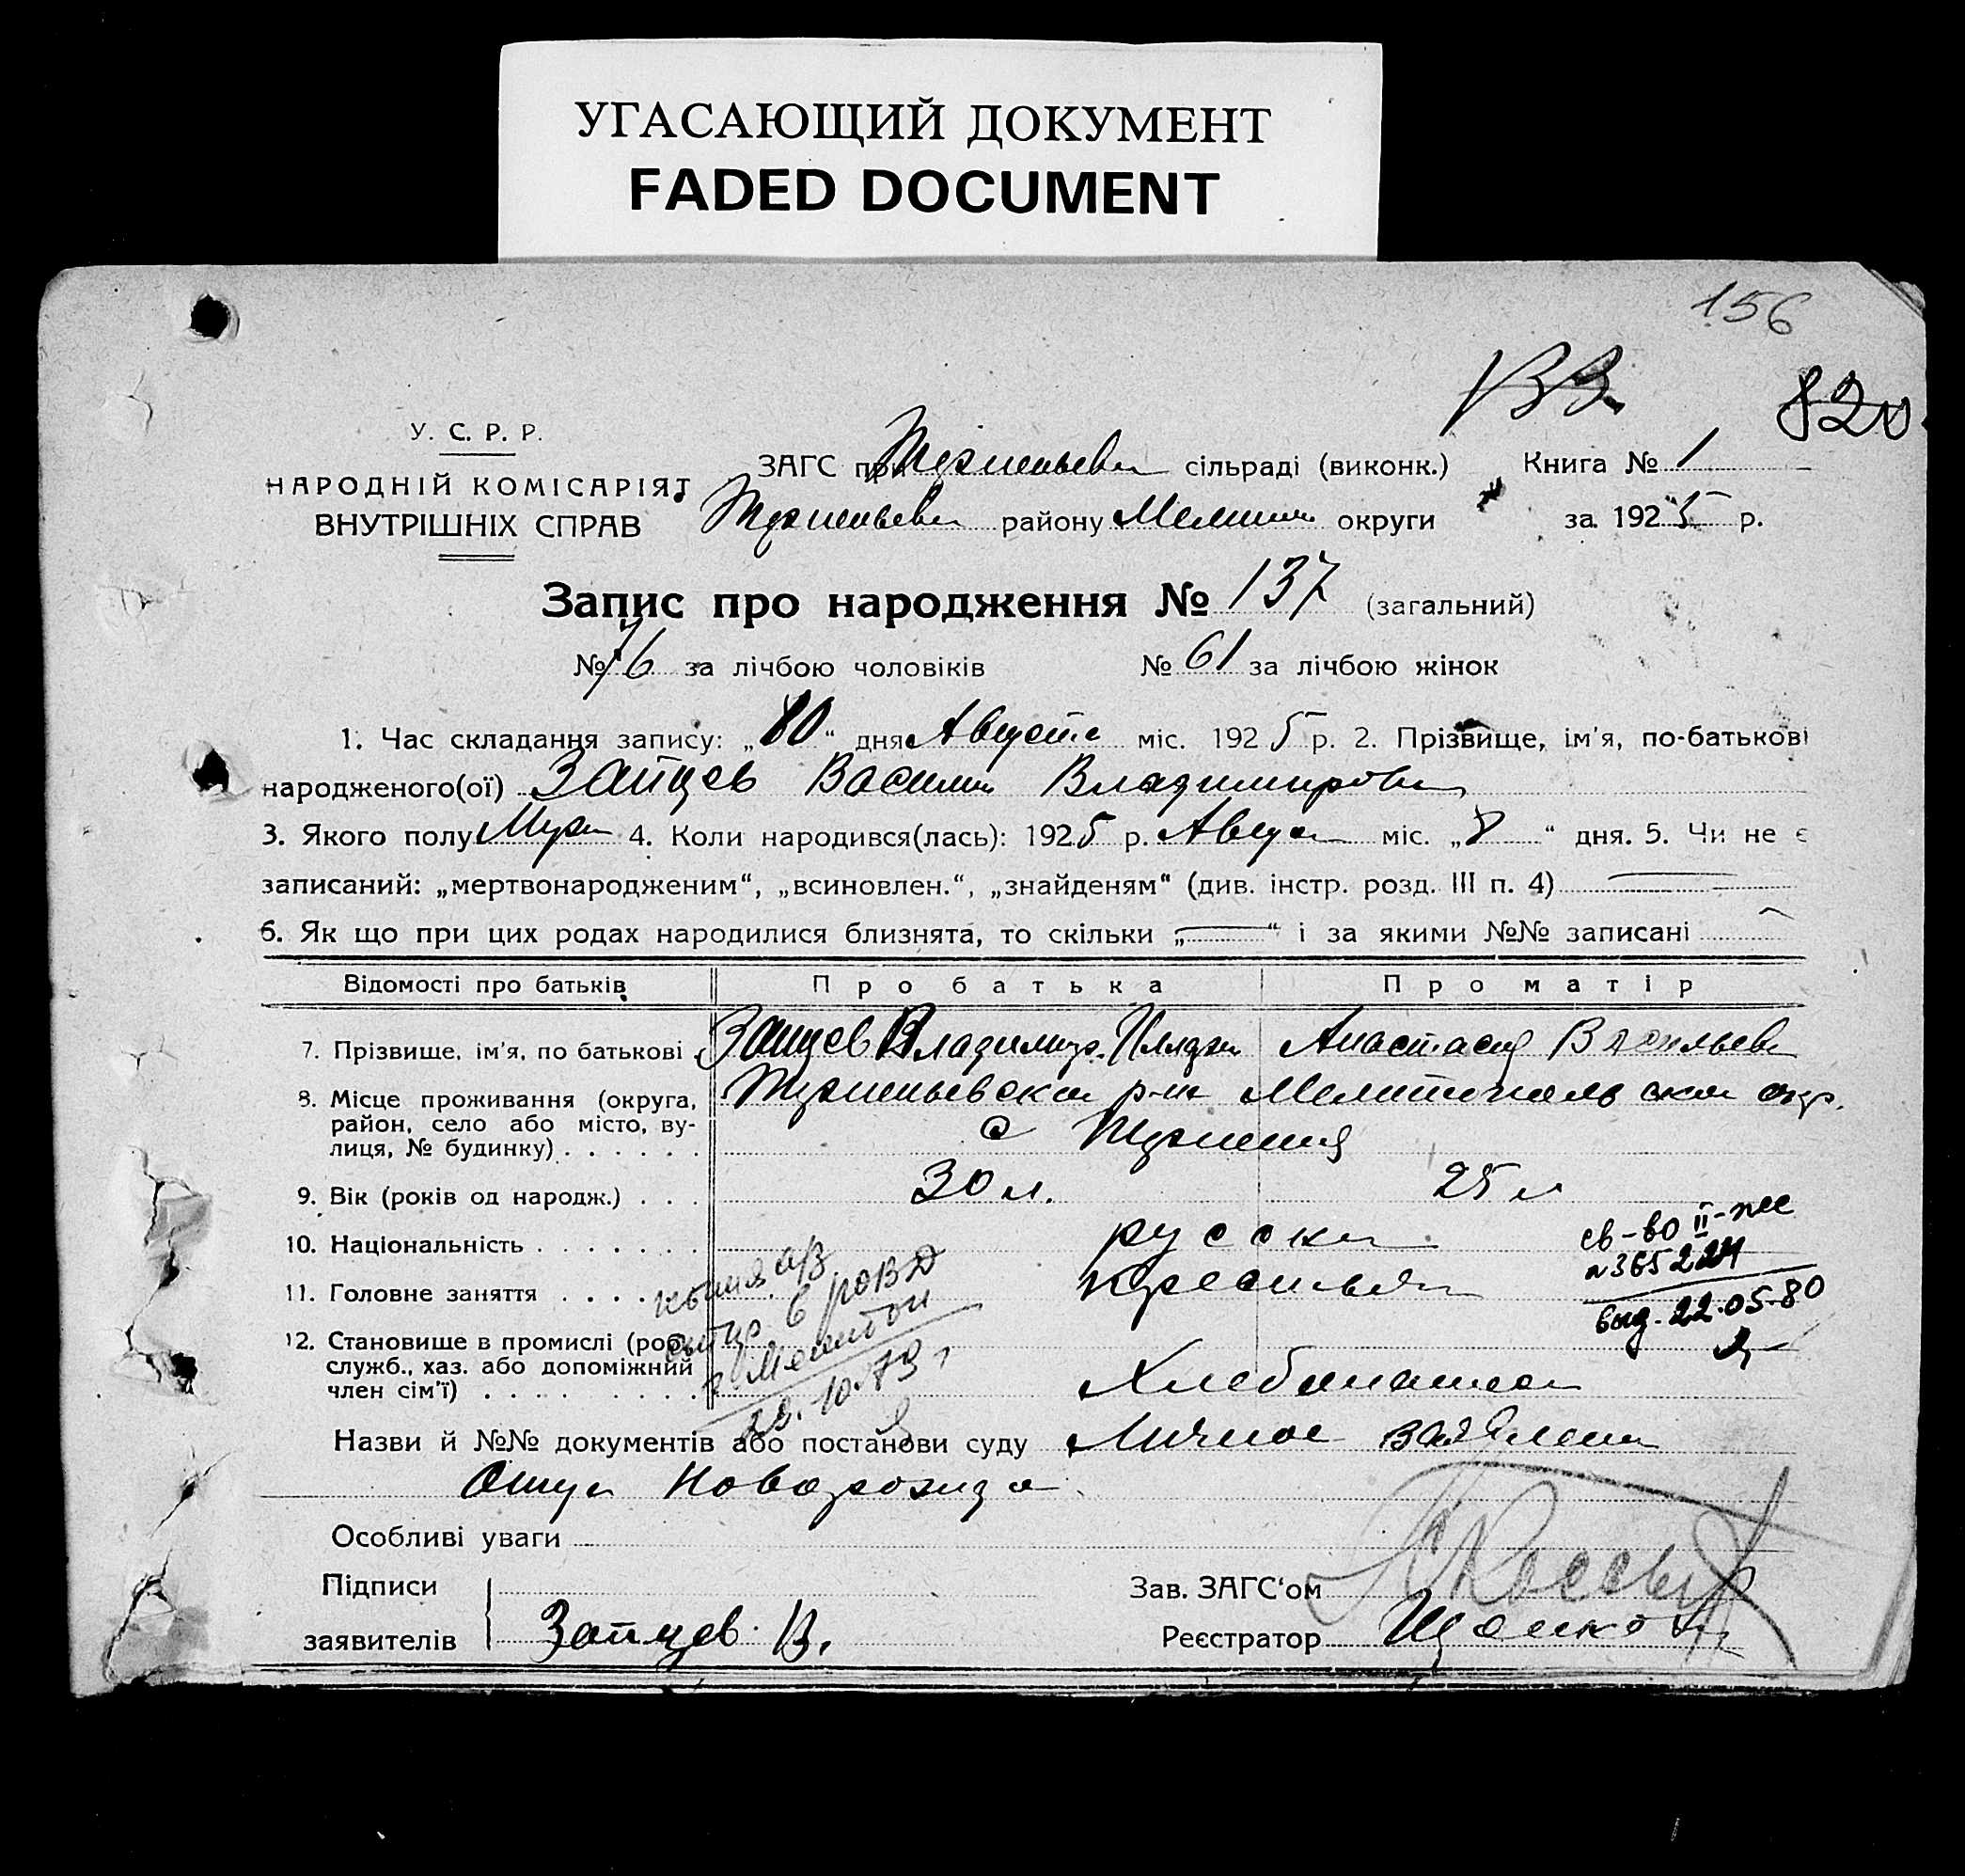 УГАСАЮЩИЙ ДОКУМЕНТ
FADED DOCUMENT
156
820
У. С. Р. Р.
НАРОДНІЙ КОМІСАРІЯТ
ВНУТРІШНІХ СПРАВ
ЗАГС при сільраді (виконк.) Книга № 1
району Мелит округи за 1925 р.
Запис про народження № 137 (загальний)
№ 76 за лічбою чоловіків № 61 за лічбою жінок
1. Час складання запису: „ “ дня Августа міс. 1925 р. 2. Прізвище, ім'я, по-батькові
народженого(ої) Зайцев Василий Владимирови
3. Якого полу Муж 4. Коли народився(лась): 1925 р. Август міс. „8“ дня. 5. Чи не є
записаний: „мертвонародженим“, „всиновлен.“, „знайденям“ (див. інстр. розд. III п. 4)
6. Як що при цих родах народилися близнята, то скільки „—“ і за якими №№ записані
Відомості про батьків Про батька Про матір
7. Прізвище, ім'я, по батькові Зайцев Владимир Анастасия Васильев
8. Місце проживання (округа, р-н Мелитопольской окр.
район, село або місто, ву- с
лиця, № будинку)
9. Вік (років од народж.) 30 л. 25 л
10. Національність русски
св-во II-
№ 365224
11. Головне заняття Крестьян
выд. 22.05.80
копия а/з
в РОВД
г. Мелитоп
22.10.79
12. Становище в промислі (роб.,
служб., хаз. або допоміжний
член сім'ї) Хлебопашес
Назви й №№ документів або постанови суду Личное заявлени
Отца Новорожд
Особливі уваги
Підписи Зав. ЗАГС'ом
заявителів Зайцев В. Реєстратор